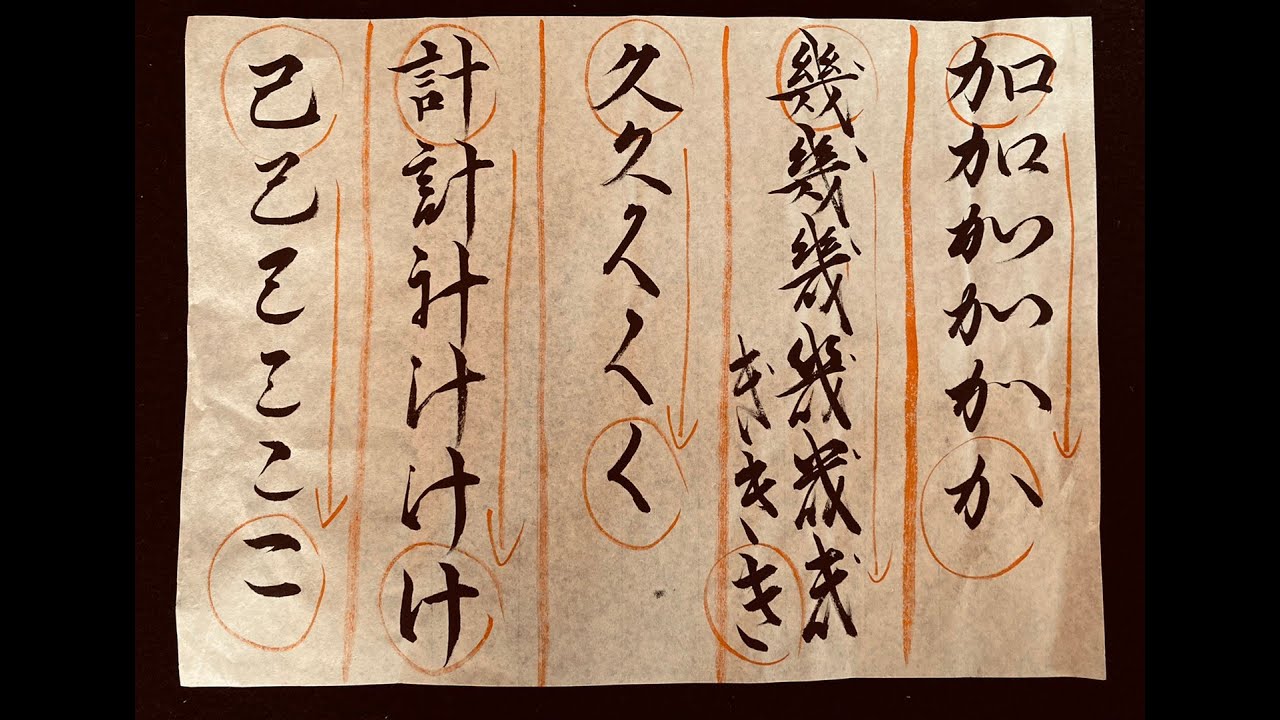 加加加加かか
幾幾幾幾幾幾
きききき
久久久くく
計計計計けけ
己己己こここ